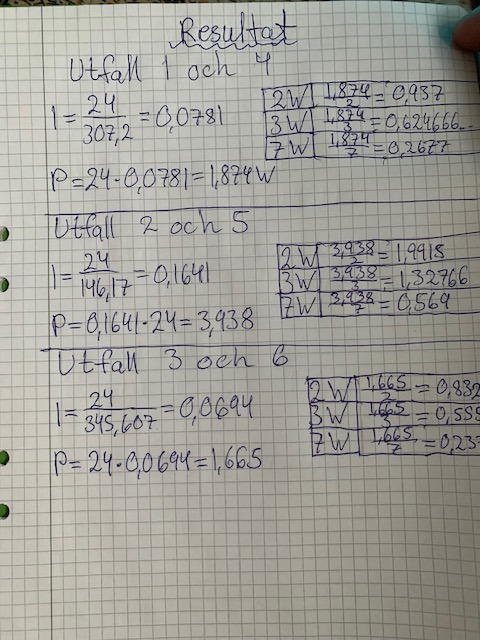 Resultat
Utfall 1 och 4
I = 24/307,2 = 0,0781
2W 1,874/2 = 0,937
3W 1,874/3 = 0,624666...
7W 1,874/7 = 0,2677
P = 24·0,0781 = 1,874W
Utfall 2 och 5
I = 24/146,17 = 0,1641
2W 3,938/2 = 1,9915
3W 3,938/3 = 1,32766
7W 3,938/7 = 0,569
P = 0,1641·24 = 3,938
Utfall 3 och 6
I = 24/345,607 = 0,0694
2W 1,665/2 = 0,832
3W 1,665/3 = 0,555
7W 1,665/7 = 0,237
P = 24·0,0694 = 1,665